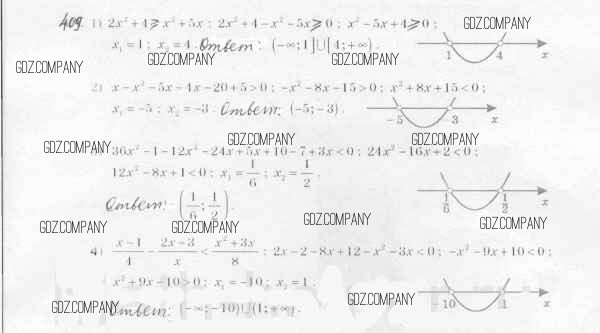 409 1) 2x² + 4 ⩾ x² + 5x ; 2x² + 4 − x² − 5x ⩾ 0 ; x² − 5x + 4 ⩾ 0 ; GDZ.COMPANY
x₁ = 1 ; x₂ = 4 . Ответ: (−∞; 1]∪[4; +∞) . 1 4 x
GDZ.COMPANY GDZ.COMPANY GDZ.COMPANY
2) x − x² − 5x − 4x − 20 + 5 > 0 ; −x² − 8x − 15 > 0 ; x² + 8x + 15 < 0 ;
x₁ = −5 ; x₂ = −3 . Ответ: (−5; −3) . −5 −3 x
GDZ.COMPANY GDZ.COMPANY GDZ.COMPANY
36x² − 1 − 12x² − 24x + 5x + 10 − 7 + 3x < 0 ; 24x² − 16x + 2 < 0 ;
12x² − 8x + 1 < 0 ; x₁ = 1/6 ; x₂ = 1/2 .
Ответ: (1/6; 1/2) . 1/6 1/2 x
GDZ.COMPANY GDZ.COMPANY GDZ.COMPANY GDZ.COMPANY
4) (x − 1)/4 − (2x − 3)/x < (x² + 3x)/8 ; 2x − 2 − 8x + 12 − x² − 3x < 0 ; −x² − 9x + 10 < 0 ;
x² + 9x − 10 > 0 ; x₁ = −10 ; x₂ = 1 .
GDZ.COMPANY Ответ: (−∞; −10)∪(1; +∞) . GDZ.COMPANY −10 1 x